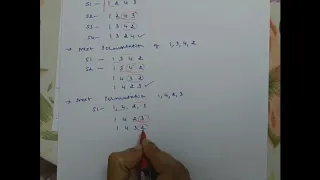 S1 - 1 2 4 3
S2 - 1 2 4 3
S3 - 1 3 4 2
S4 - 1 3 2 4 ✓
→ Next Permutation of 1, 3, 4, 2
S1 - 1 3 4 2
S2 - 1 3 4 2
1 4 3 2
1 4 2 3 ✓
→ Next Permutation 1, 4, 2, 3
S1 - 1, 4, 2, 3
1 4 2 3
1 4 3 2